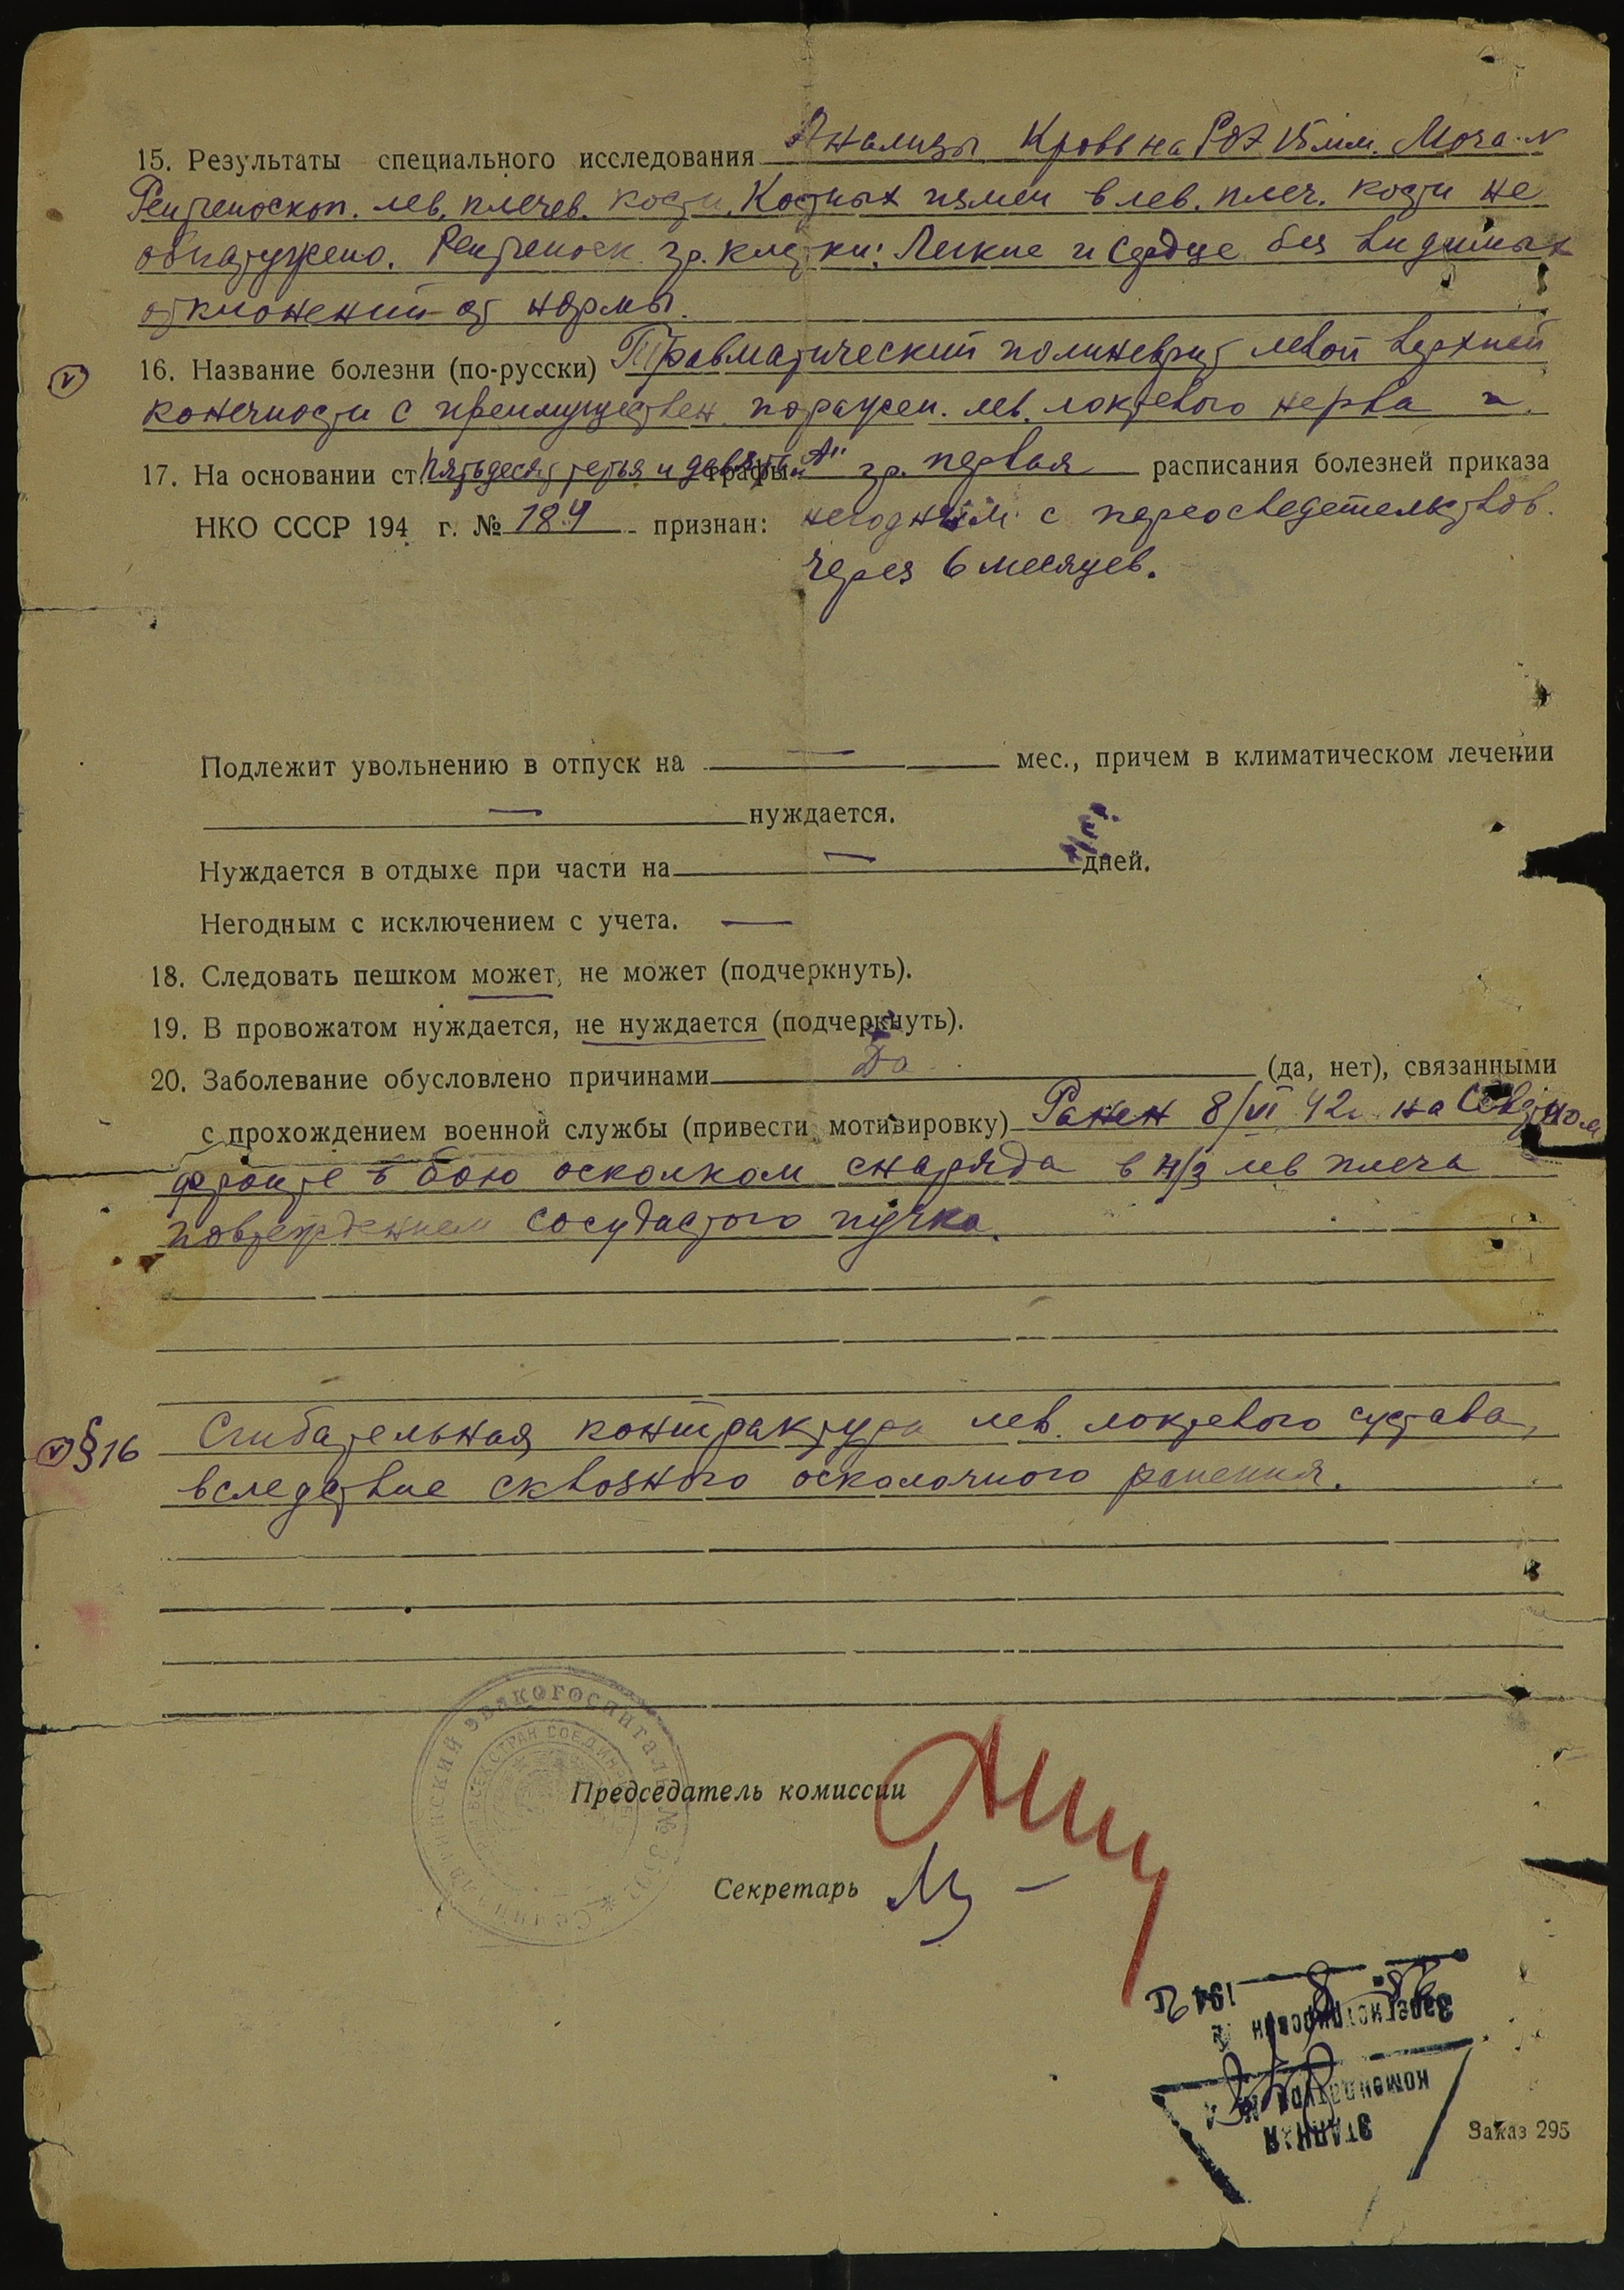 15. Результаты специального исследования Анализы Кровь на РОЭ 15 мм. Моча - N
Рентгеноскоп. лев. плечев. кости. Костных измен в лев. плеч. кости не
обнаружено. Рентгеноск гр. клетки: Легкие и сердце без видимых
отклонений от нормы.
16. Название болезни (по-русски) Травматический полиневрит левой верхней
конечности с преимуществен. поражен. лев. локтевого нерва и
17. На основании ст. пятьдесят третья и девятый графы "А" гр. первая расписания болезней приказа
НКО СССР 194 г. № 184 признан: негодным с переосведетельствов.
через 6 месяцев.
Подлежит увольнению в отпуск на — мес., причем в климатическом лечении
— нуждается.
Нуждается в отдыхе при части на — дней.
Негодным с исключением с учета. —
18. Следовать пешком может, не может (подчеркнуть).
19. В провожатом нуждается, не нуждается (подчеркнуть).
20. Заболевание обусловлено причинами Да (да, нет), связанными
с прохождением военной службы (привести мотивировку) Ранен 8/VI 42г. на
фронте в бою осколком снаряда в н/з лев плеча
повреждением сосудастого пучка.
V § 16 Сгибательная контрактура лев. локтевого сустава,
вследствие сквозного осколочного ранения.
эвакогоспиталь №
ВСЕХ СТРАН СОЕДИН
Председатель комиссии
Секретарь
194 2 г.
Зарегистрирован
комендатура №
ЭТАПНАЯ
Заказ 295